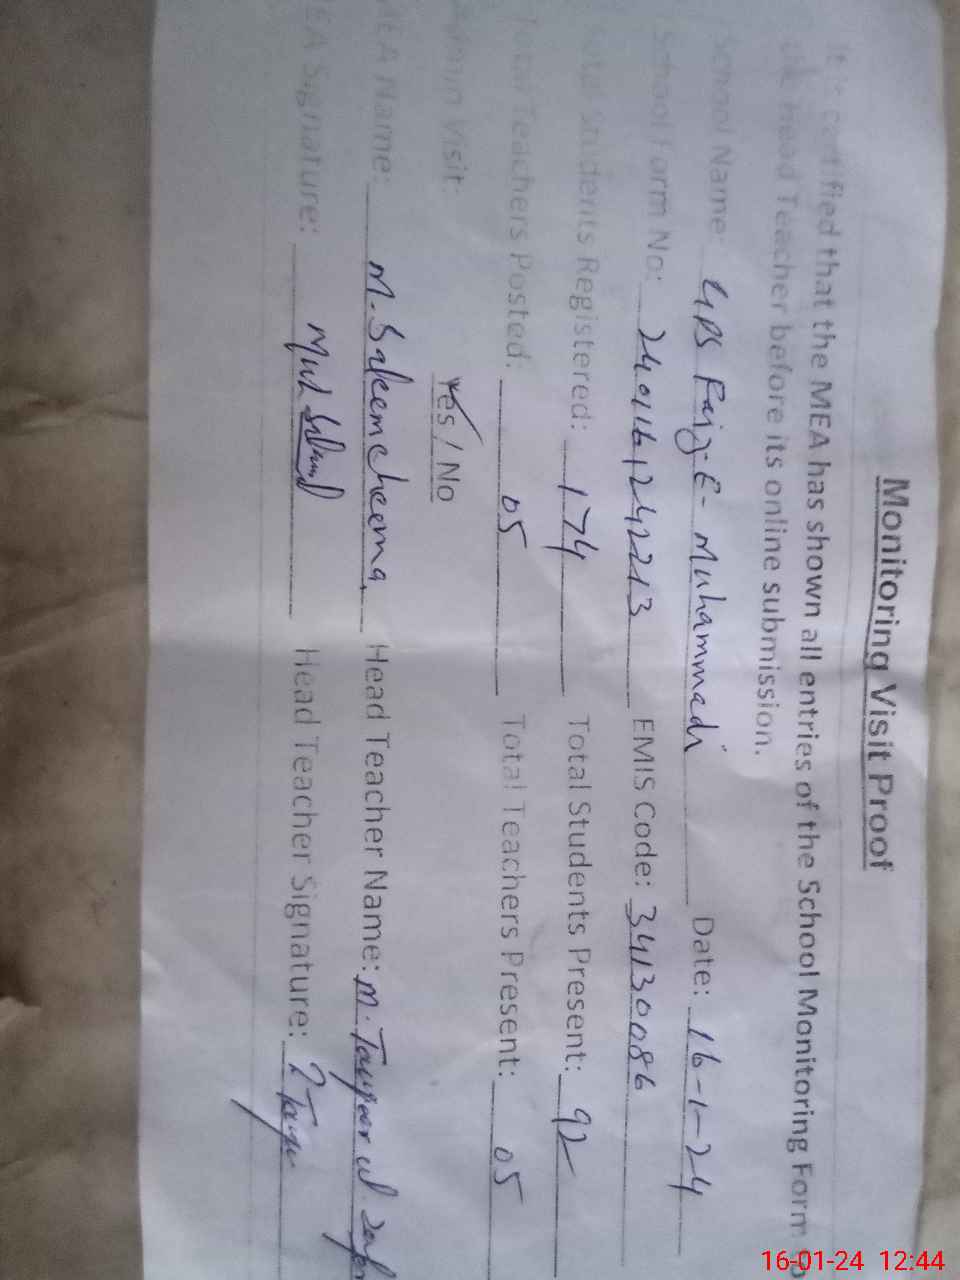 Monitoring Visit Proof
It is certified that the MEA has shown all entries of the School Monitoring Form to
the Head Teacher before its online submission.
School Name: GPS Faiz-E-Muhammadi Date: 16-1-24
School Form No: EMIS Code: 34130086
Total Students Registered: 174 Total Students Present: 92
Total Teachers Posted: 05 Total Teachers Present: 05
Admin Visit: Yes / No
MEA Name: M. Saleem cheema Head Teacher Name: M.
MEA Signature: Head Teacher Signature:
16-01-24 12:44